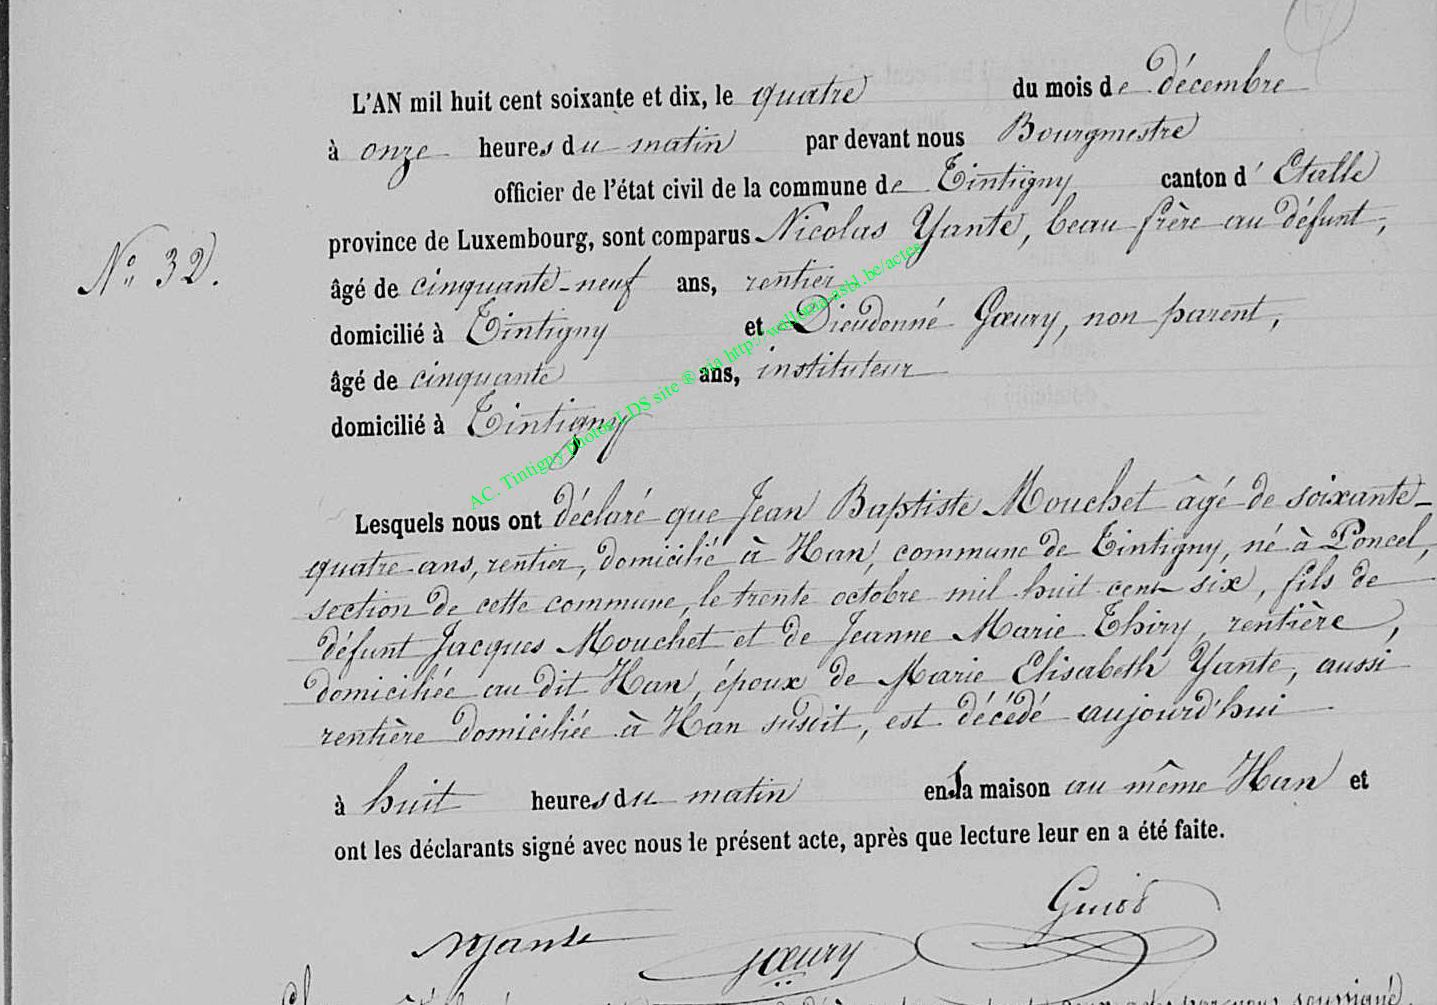 L'AN mil huit cent soixante et dix, le quatre du mois de décembre
à onze heures du matin par devant nous Bourgmestre
officier de l'état civil de la commune de Tintigny canton d' Etalle
N° 32.
province de Luxembourg, sont comparus Nicolas Yante, beau frère au défunt,
âgé de cinquante-neuf ans, rentier
domicilié à Tintigny et Dieudonné Gœury, non parent,
âgé de cinquante ans, instituteur
domicilié à Tintigny
AC. Tintigny photos LDS site ® via http://wallonia-asbl.be/actes
Lesquels nous ont déclaré que Jean Baptiste Mouchet âgé de soixante-
quatre ans, rentier, domicilié à Han, commune de Tintigny, né à Poncel,
section de cette commune, le trente octobre mil huit cent six, fils de
défunt Jacques Mouchet et de Jeanne Marie Thiry, rentière,
domiciliée au dit Han, époux de Marie Elisabeth Yante, aussi
rentière domiciliée à Han susdit, est décédé aujourd'hui
à huit heures du matin en sa maison au même Han et
ont les déclarants signé avec nous le présent acte, après que lecture leur en a été faite.
NYante Gœury
soussigné